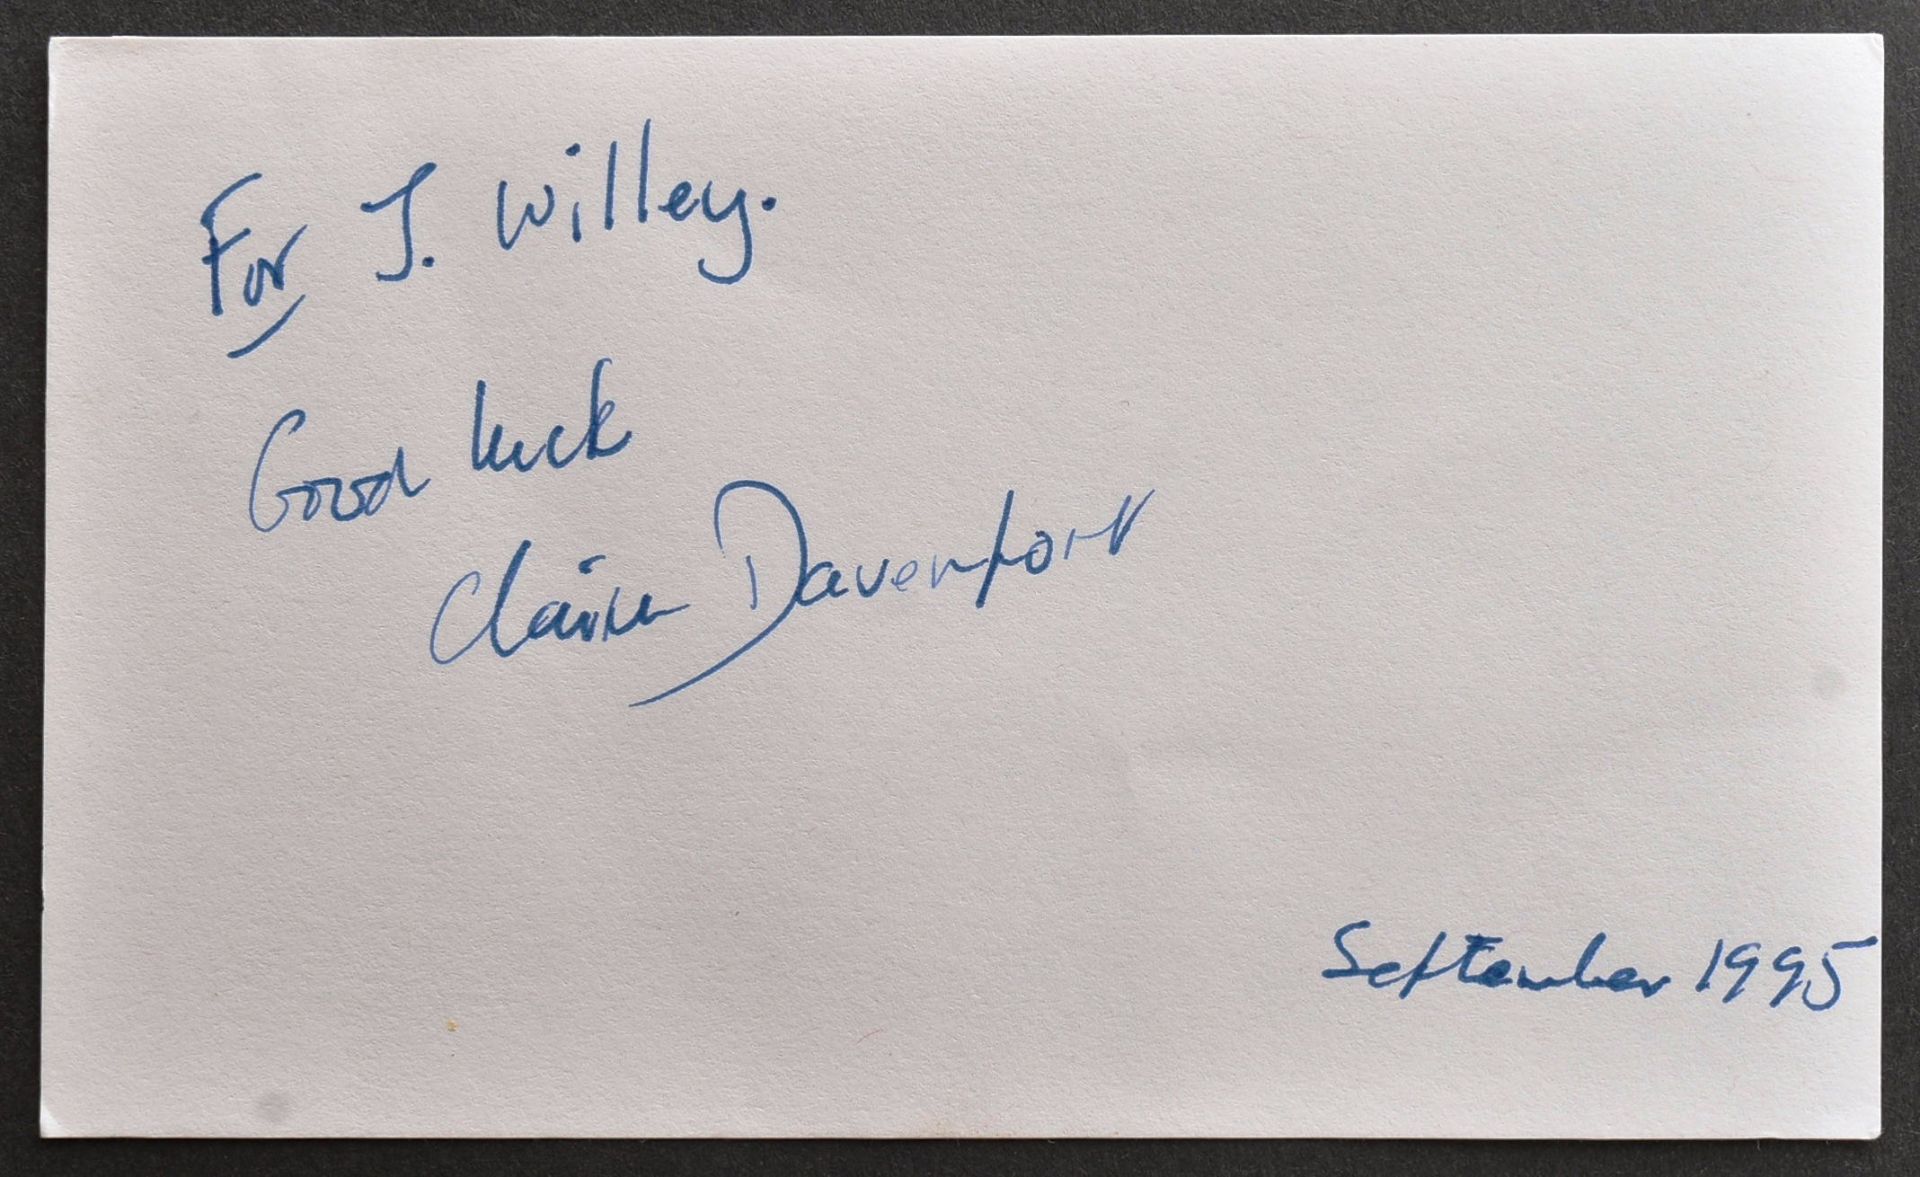 For J. Willey.
Good luck
Claire Davenport
September 1995